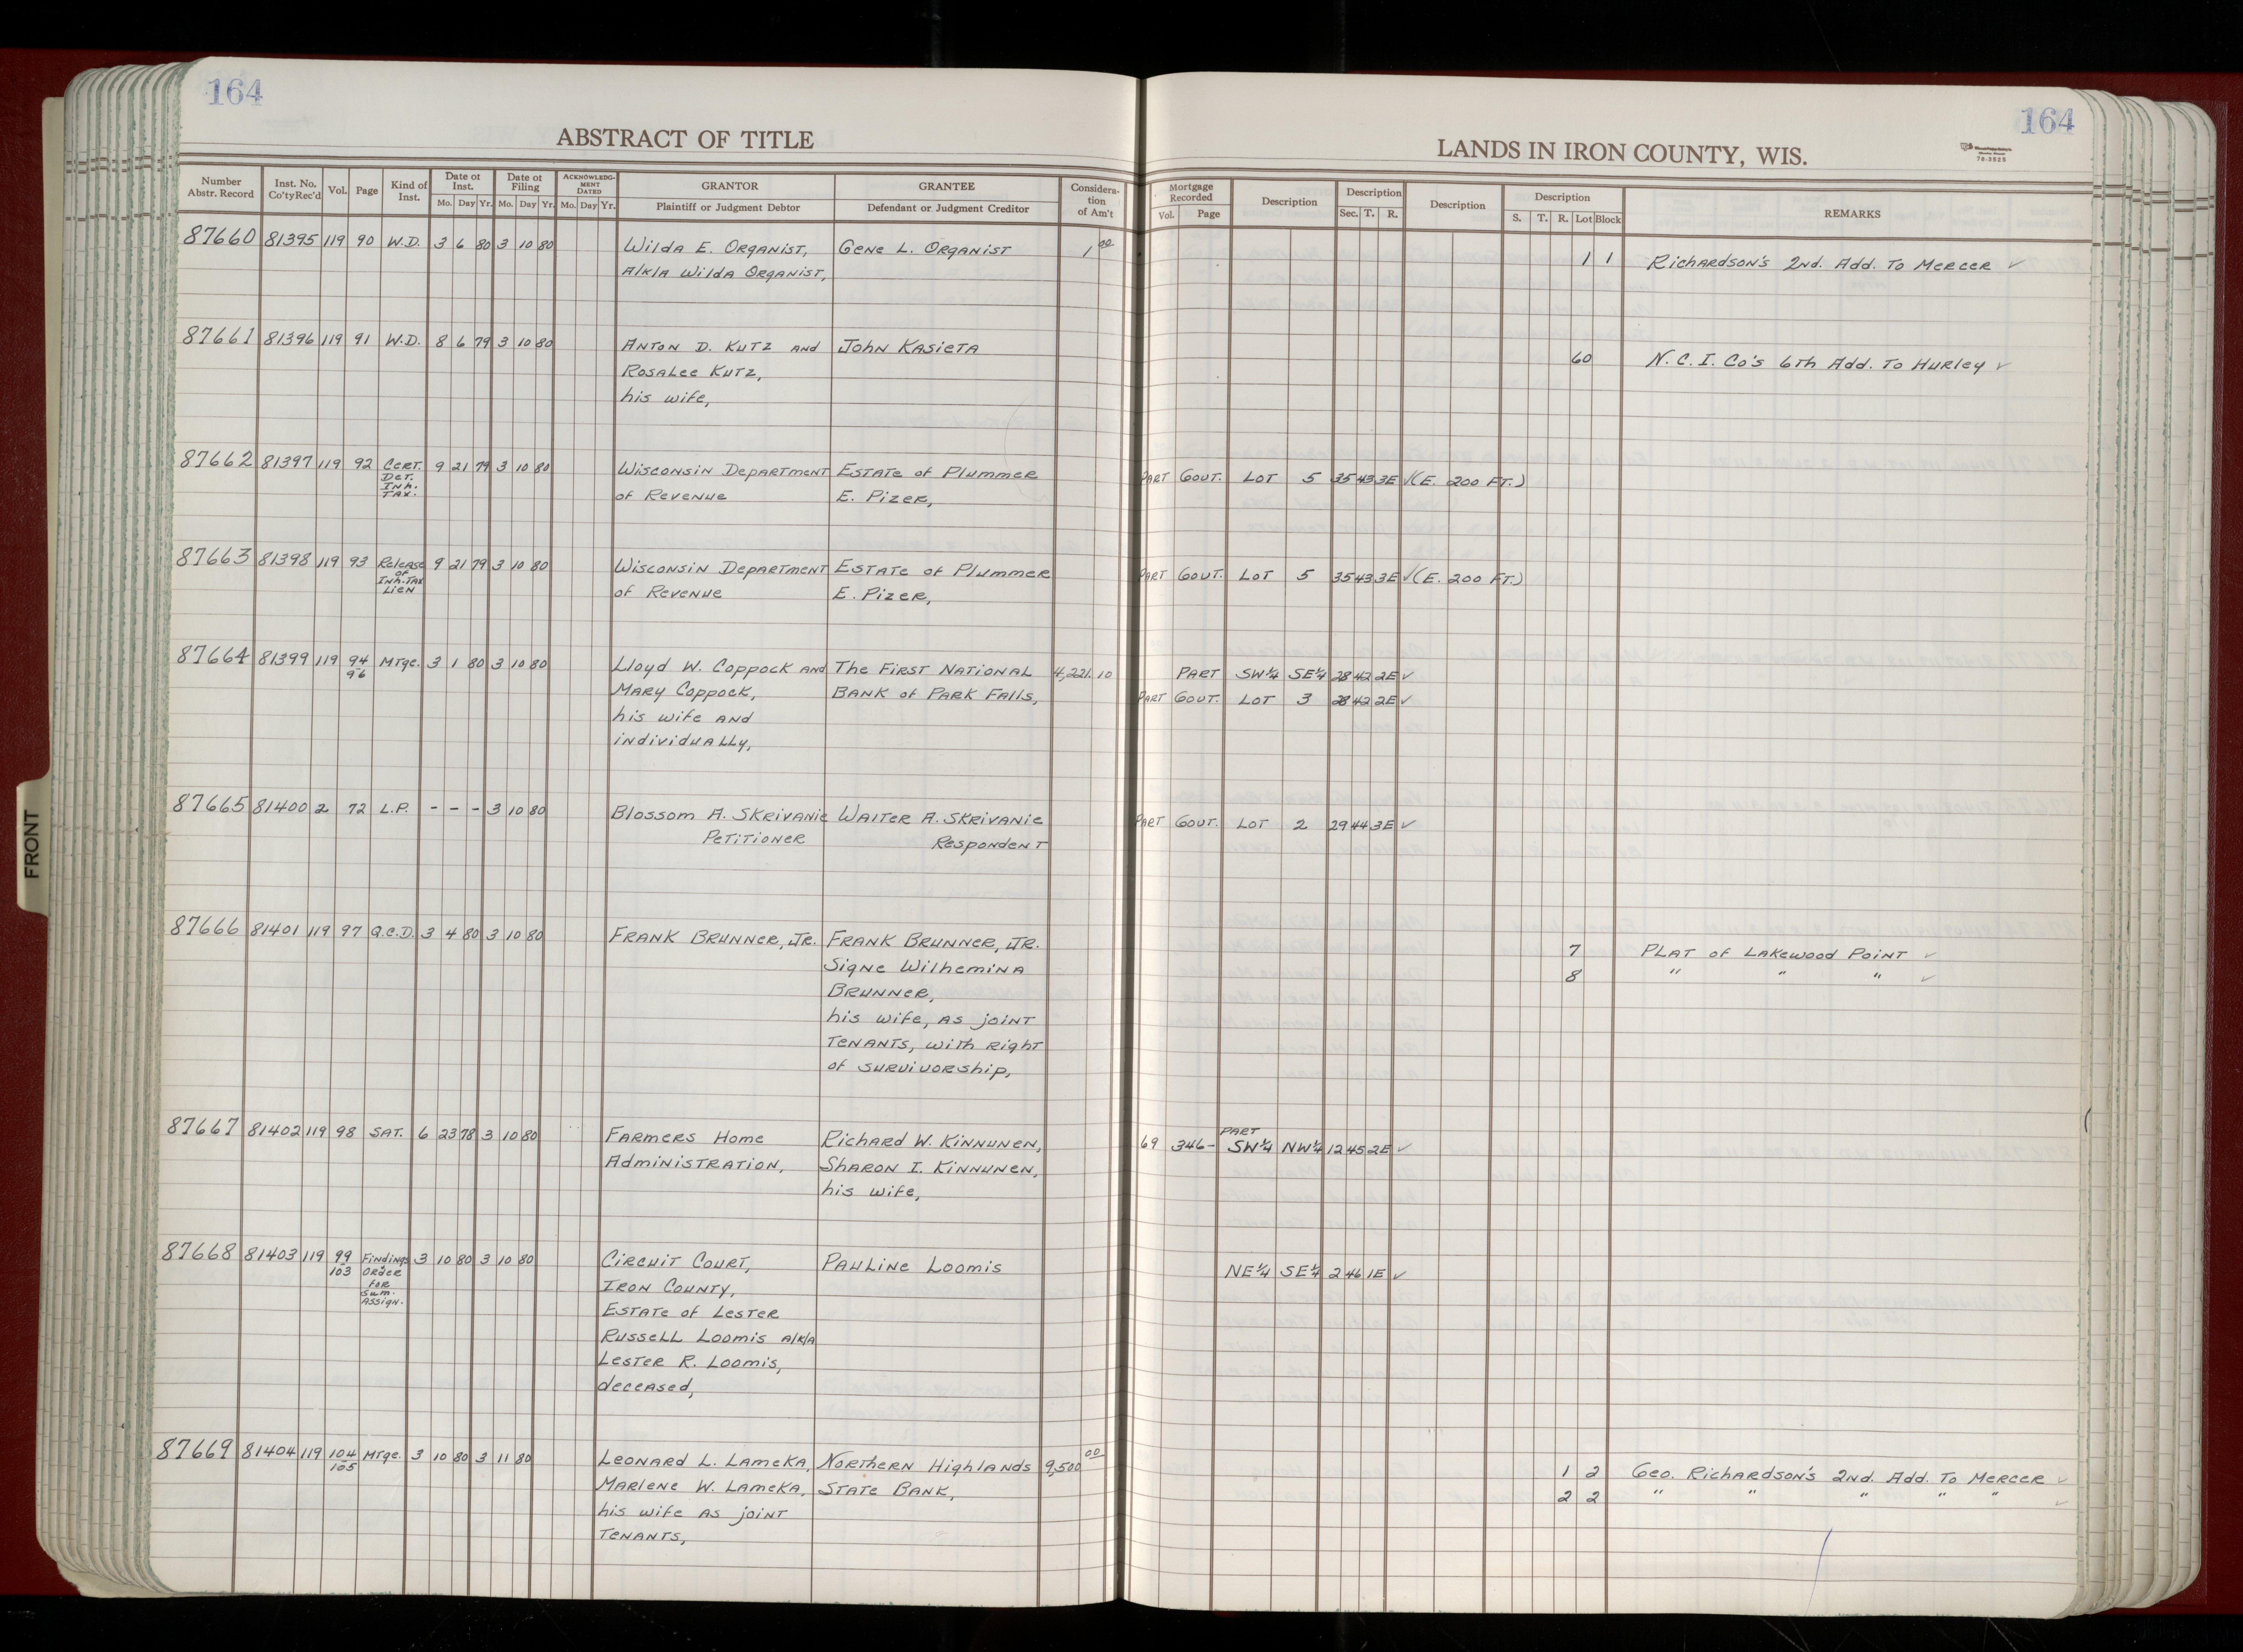 164
ABSTRACT OF TITLE
164
LANDS IN IRON COUNTY, WIS.
78-3525
Number Abstr. Record | Inst. No. Co'ty Rec'd | Vol. | Page | Kind of Inst. | Date of Inst. Mo. Day Yr. | Date of Filing Mo. Day Yr. | ACKNOWLEDGMENT DATED Mo. Day Yr. | GRANTOR Plaintiff or Judgment Debtor | GRANTEE Defendant or Judgment Creditor | Consideration of Am't | Mortgage Recorded Vol. Page | Description | Description Sec. T. R. | Description | Description S. T. R. Lot Block | REMARKS
87660 81395 119 90 W.D. 3 6 80 3 10 80 Wilda E. Organist, Gene L. Organist 1 00
1 1 Richardson's 2nd. Add. To Mercer ✓
A/K/A Wilda Organist,
87661 81396 119 91 W.D. 8 6 79 3 10 80 Anton D. Kutz and John Kasieta
60 N.C.I. Co's 6th Add. To Hurley ✓
Rosalee Kutz,
his wife,
87662 81397 119 92 Cert. Det. Inh. Tax. 9 21 79 3 10 80 Wisconsin Department Estate of Plummer
Part Gout. Lot 5 35 43 3E ✓ (E. 200 FT.)
of Revenue E. Pizer,
87663 81398 119 93 Release of Inh. Tax Lien 9 21 79 3 10 80 Wisconsin Department Estate of Plummer
Part Gout. Lot 5 35 43 3E ✓ (E. 200 FT.)
of Revenue E. Pizer,
87664 81399 119 94-96 Mtge. 3 1 80 3 10 80 Lloyd W. Coppock and The First National 4,221.10
Part SW¼ SE¼ 28 42 2E ✓
Mary Coppock, Bank of Park Falls,
Part Gout. Lot 3 28 42 2E ✓
his wife and
individually,
87665 81400 2 72 L.P. - - - 3 10 80 Blossom A. Skrivanie Walter A. Skrivanie
Part Gout. Lot 2 29 44 3E ✓
Petitioner Respondent
87666 81401 119 97 Q.C.D. 3 4 80 3 10 80 Frank Brunner, Jr. Frank Brunner, Jr.
7 Plat of Lakewood Point ✓
Signe Wilhemina
8 " " " ✓
Brunner,
his wife, as joint
tenants, with right
of survivorship,
87667 81402 119 98 Sat. 6 23 78 3 10 80 Farmers Home Richard W. Kinnunen,
69 346- Part SW¼ NW¼ 12 45 2E ✓
Administration, Sharon I. Kinnunen,
his wife,
87668 81403 119 99-103 Findings Order for Sum. Assign. 3 10 80 3 10 80 Circuit Court, Pauline Loomis
NE¼ SE¼ 2 46 1E ✓
Iron County,
Estate of Lester
Russell Loomis a/k/a
Lester R. Loomis,
deceased,
87669 81404 119 104-105 Mtge. 3 10 80 3 11 80 Leonard L. Lameka, Northern Highlands 9,500 00
1 2 Geo. Richardson's 2nd. Add. To Mercer ✓
Marlene W. Lameka, State Bank,
2 2 " " " " " ✓
his wife as joint
tenants,
FRONT